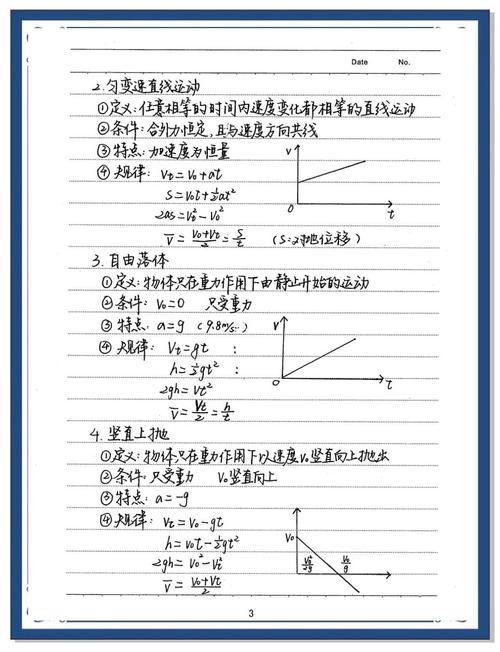 Date No.
2.匀变速直线运动
①定义:任意相等的时间内速度变化都相等的直线运动
②条件:合外力恒定,且与速度方向共线
③特点:加速度为恒量
④规律: Vt=V₀+at
S=V₀t+½at²
2as=Vt²-V₀²
V̅=(V₀+Vt)/2=S/t (S:对地位移)
V
O
t
3.自由落体
①定义:物体只在重力作用下由静止开始的运动
②条件: V₀=0 只受重力
③特点: a=g (9.8m/s..)
④规律: Vt=gt :
h=½gt² :
2gh=Vt²
V̅=Vt/2=h/t
V
O
t
4.竖直上抛
①定义:物体只在重力作用下以速度V₀竖直向上抛出
②条件:只受重力 V₀竖直向上
③特点: a=-g
④规律: Vt=V₀-gt
h=V₀t-½gt²
2gh=V₀²-Vt²
V̅=(V₀+Vt)/2
V₀
V₀²/2g
V₀/g
3